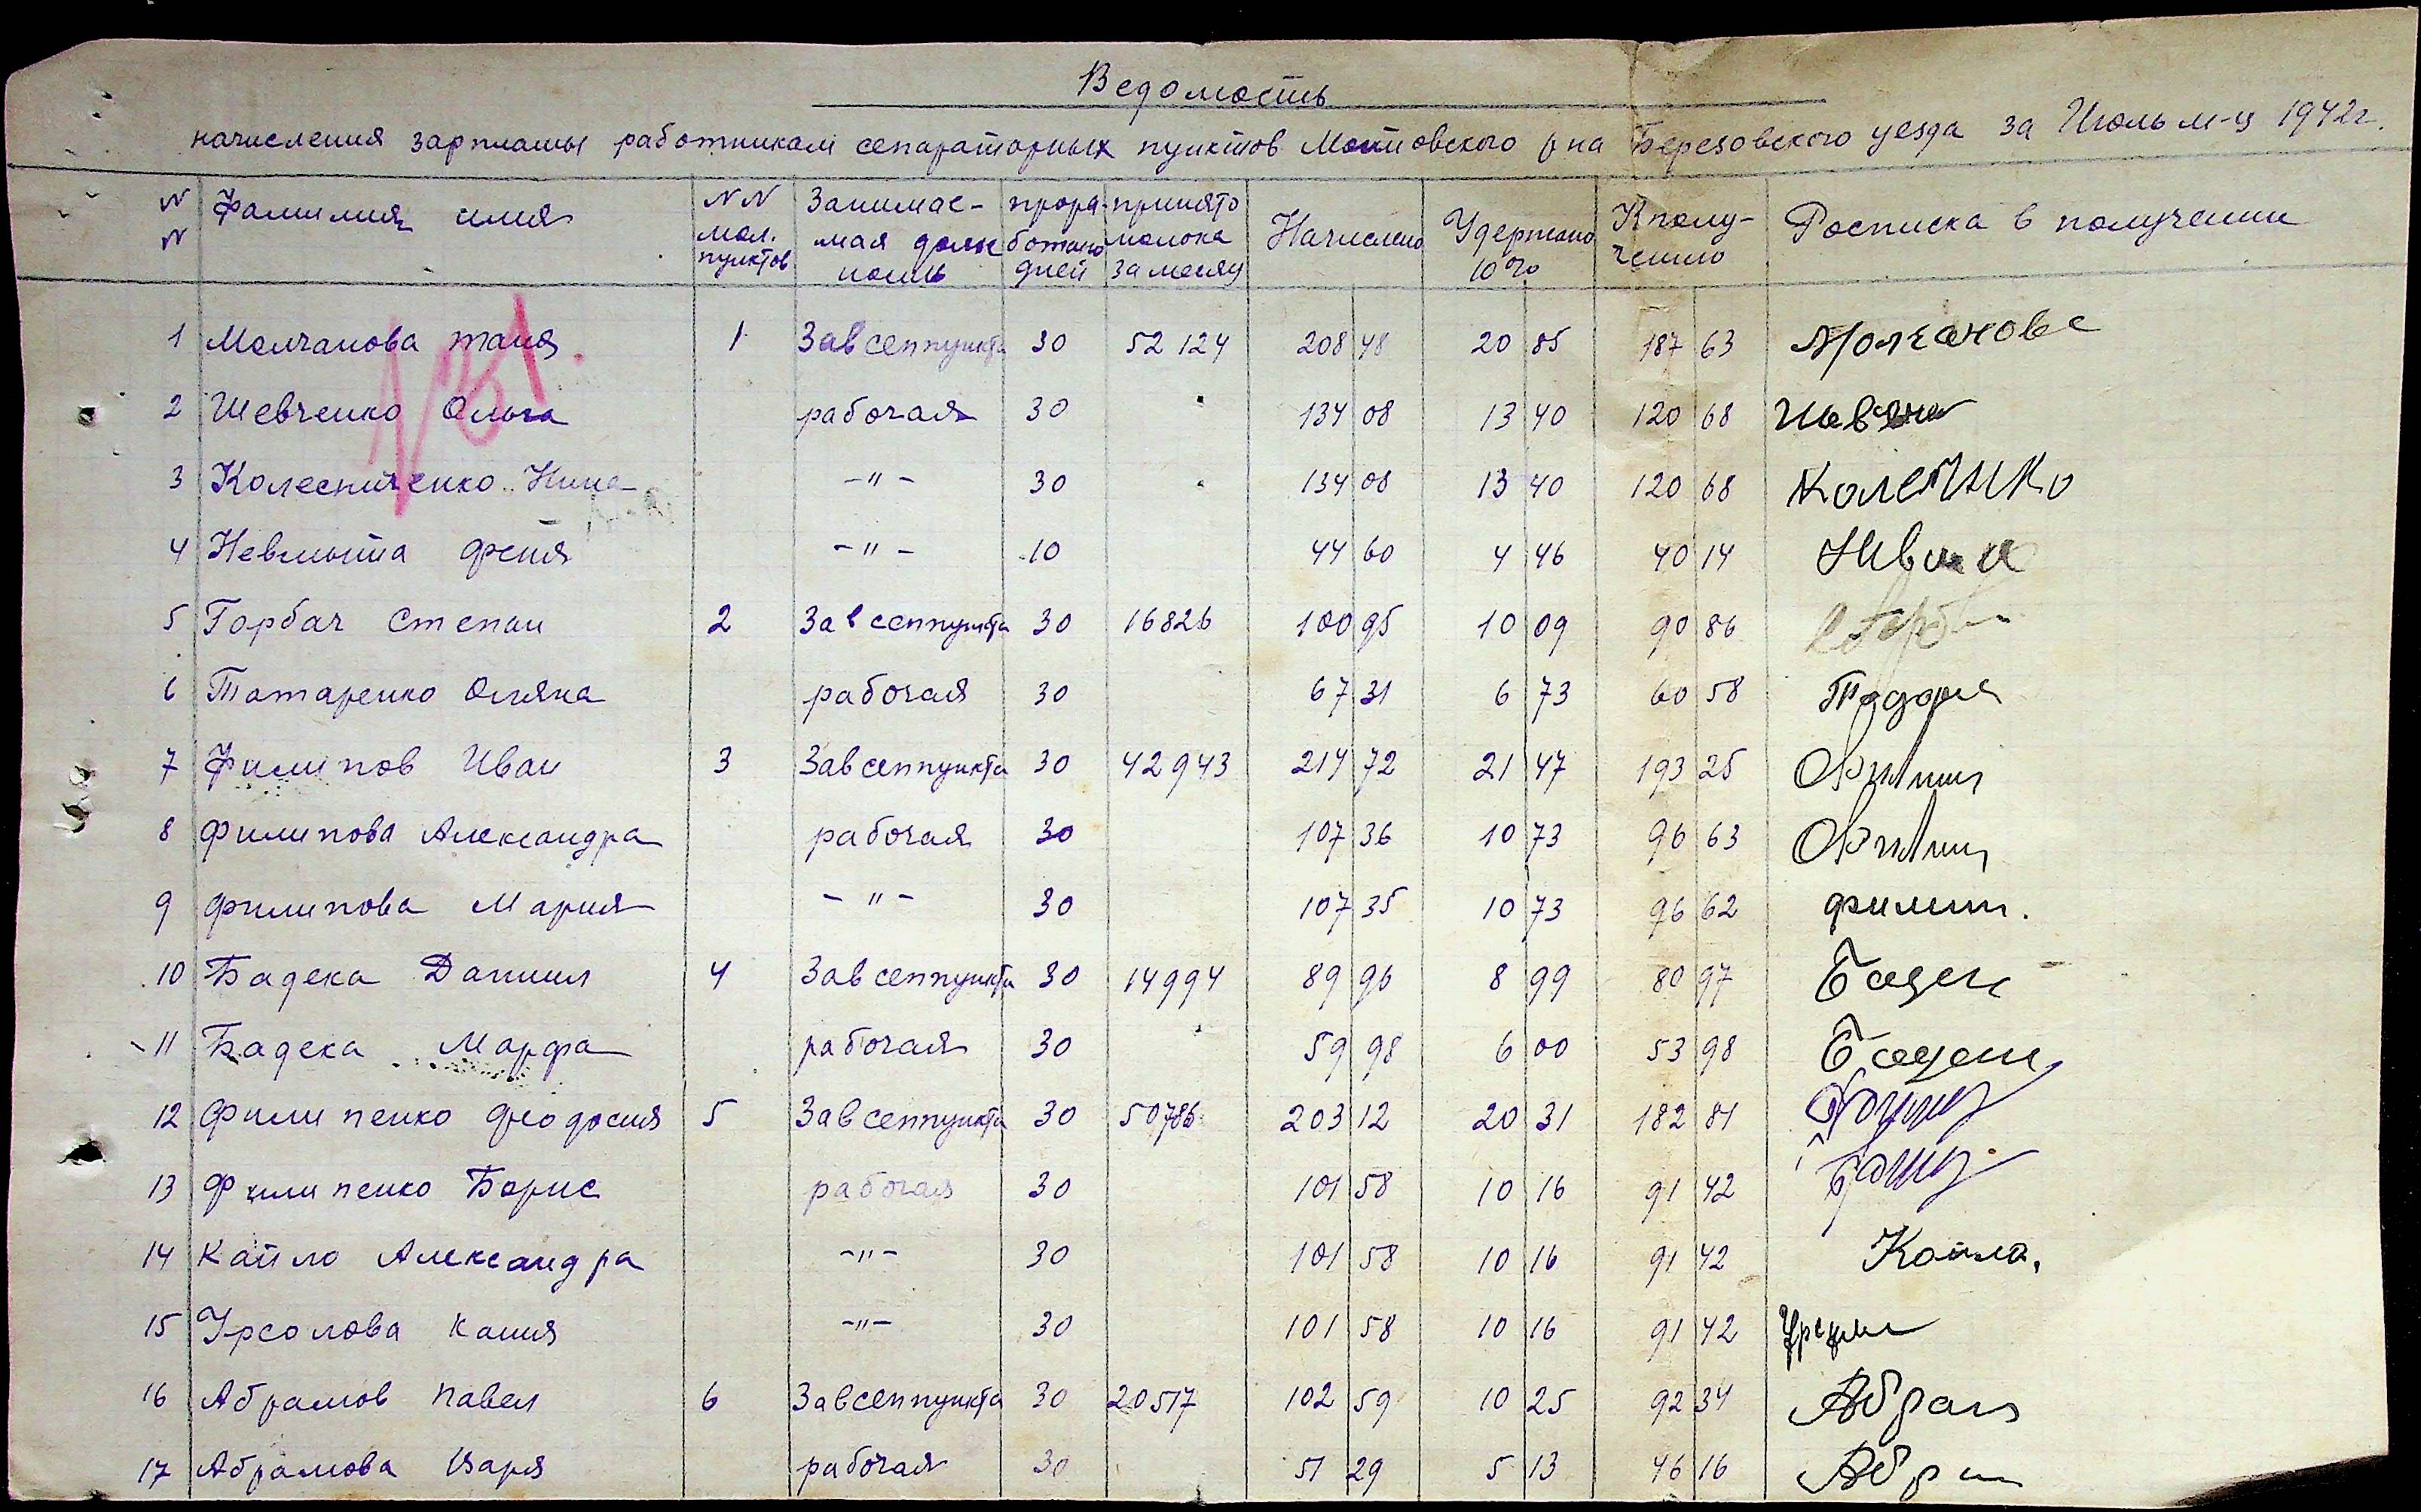 Ведомость
начисления зарплаты работникам сепараторных пунктов Мостовского р на Березовского уезда за Июль м-ц 1942г.
N N Фамилия имя N N мол. пунктов Занимаемая должность прора-ботано дней принято молока за месяц Начислено Удержано 10% К полу-чению Росписка в получении
1 Молчанова Таня 1 Зав сеппункта 30 52124 208 48 20 85 187 63 Молчанова
2 Шевченко Ольга рабочая 30 134 08 13 40 120 68
3 Колесниченко Нина -"- 30 134 08 13 40 120 68
4 Невмыта Феня -"- 10 44 60 4 46 40 14
5 Горбач Степан 2 Зав сеппункта 30 16826 100 95 10 09 90 86
6 Татаренко Оляна рабочая 30 67 31 6 73 60 58
7 Филипов Иван 3 Зав сеппункта 30 42943 214 72 21 47 193 25
8 Филипова Александра рабочая 30 107 36 10 73 96 63
9 Филипова Мария -"- 30 107 35 10 73 96 62 Филип.
10 Бадека Даниил 4 Зав сеппункта 30 14994 89 96 8 99 80 97
11 Бадека Марфа рабочая 30 59 98 6 00 53 98
12 Филипенко Феодосия 5 Зав сеппункта 30 50786 203 12 20 31 182 81
13 Филипенко Борис рабочая 30 101 58 10 16 91 42
14 Кайло Александра -"- 30 101 58 10 16 91 42 Кайло.
15 Урсолова Каня -"- 30 101 58 10 16 91 42
16 Абрамов Павел 6 Зав сеппункта 30 20517 102 59 10 25 92 34 Абрам
17 Абрамова Варя рабочая 30 51 29 5 13 46 16